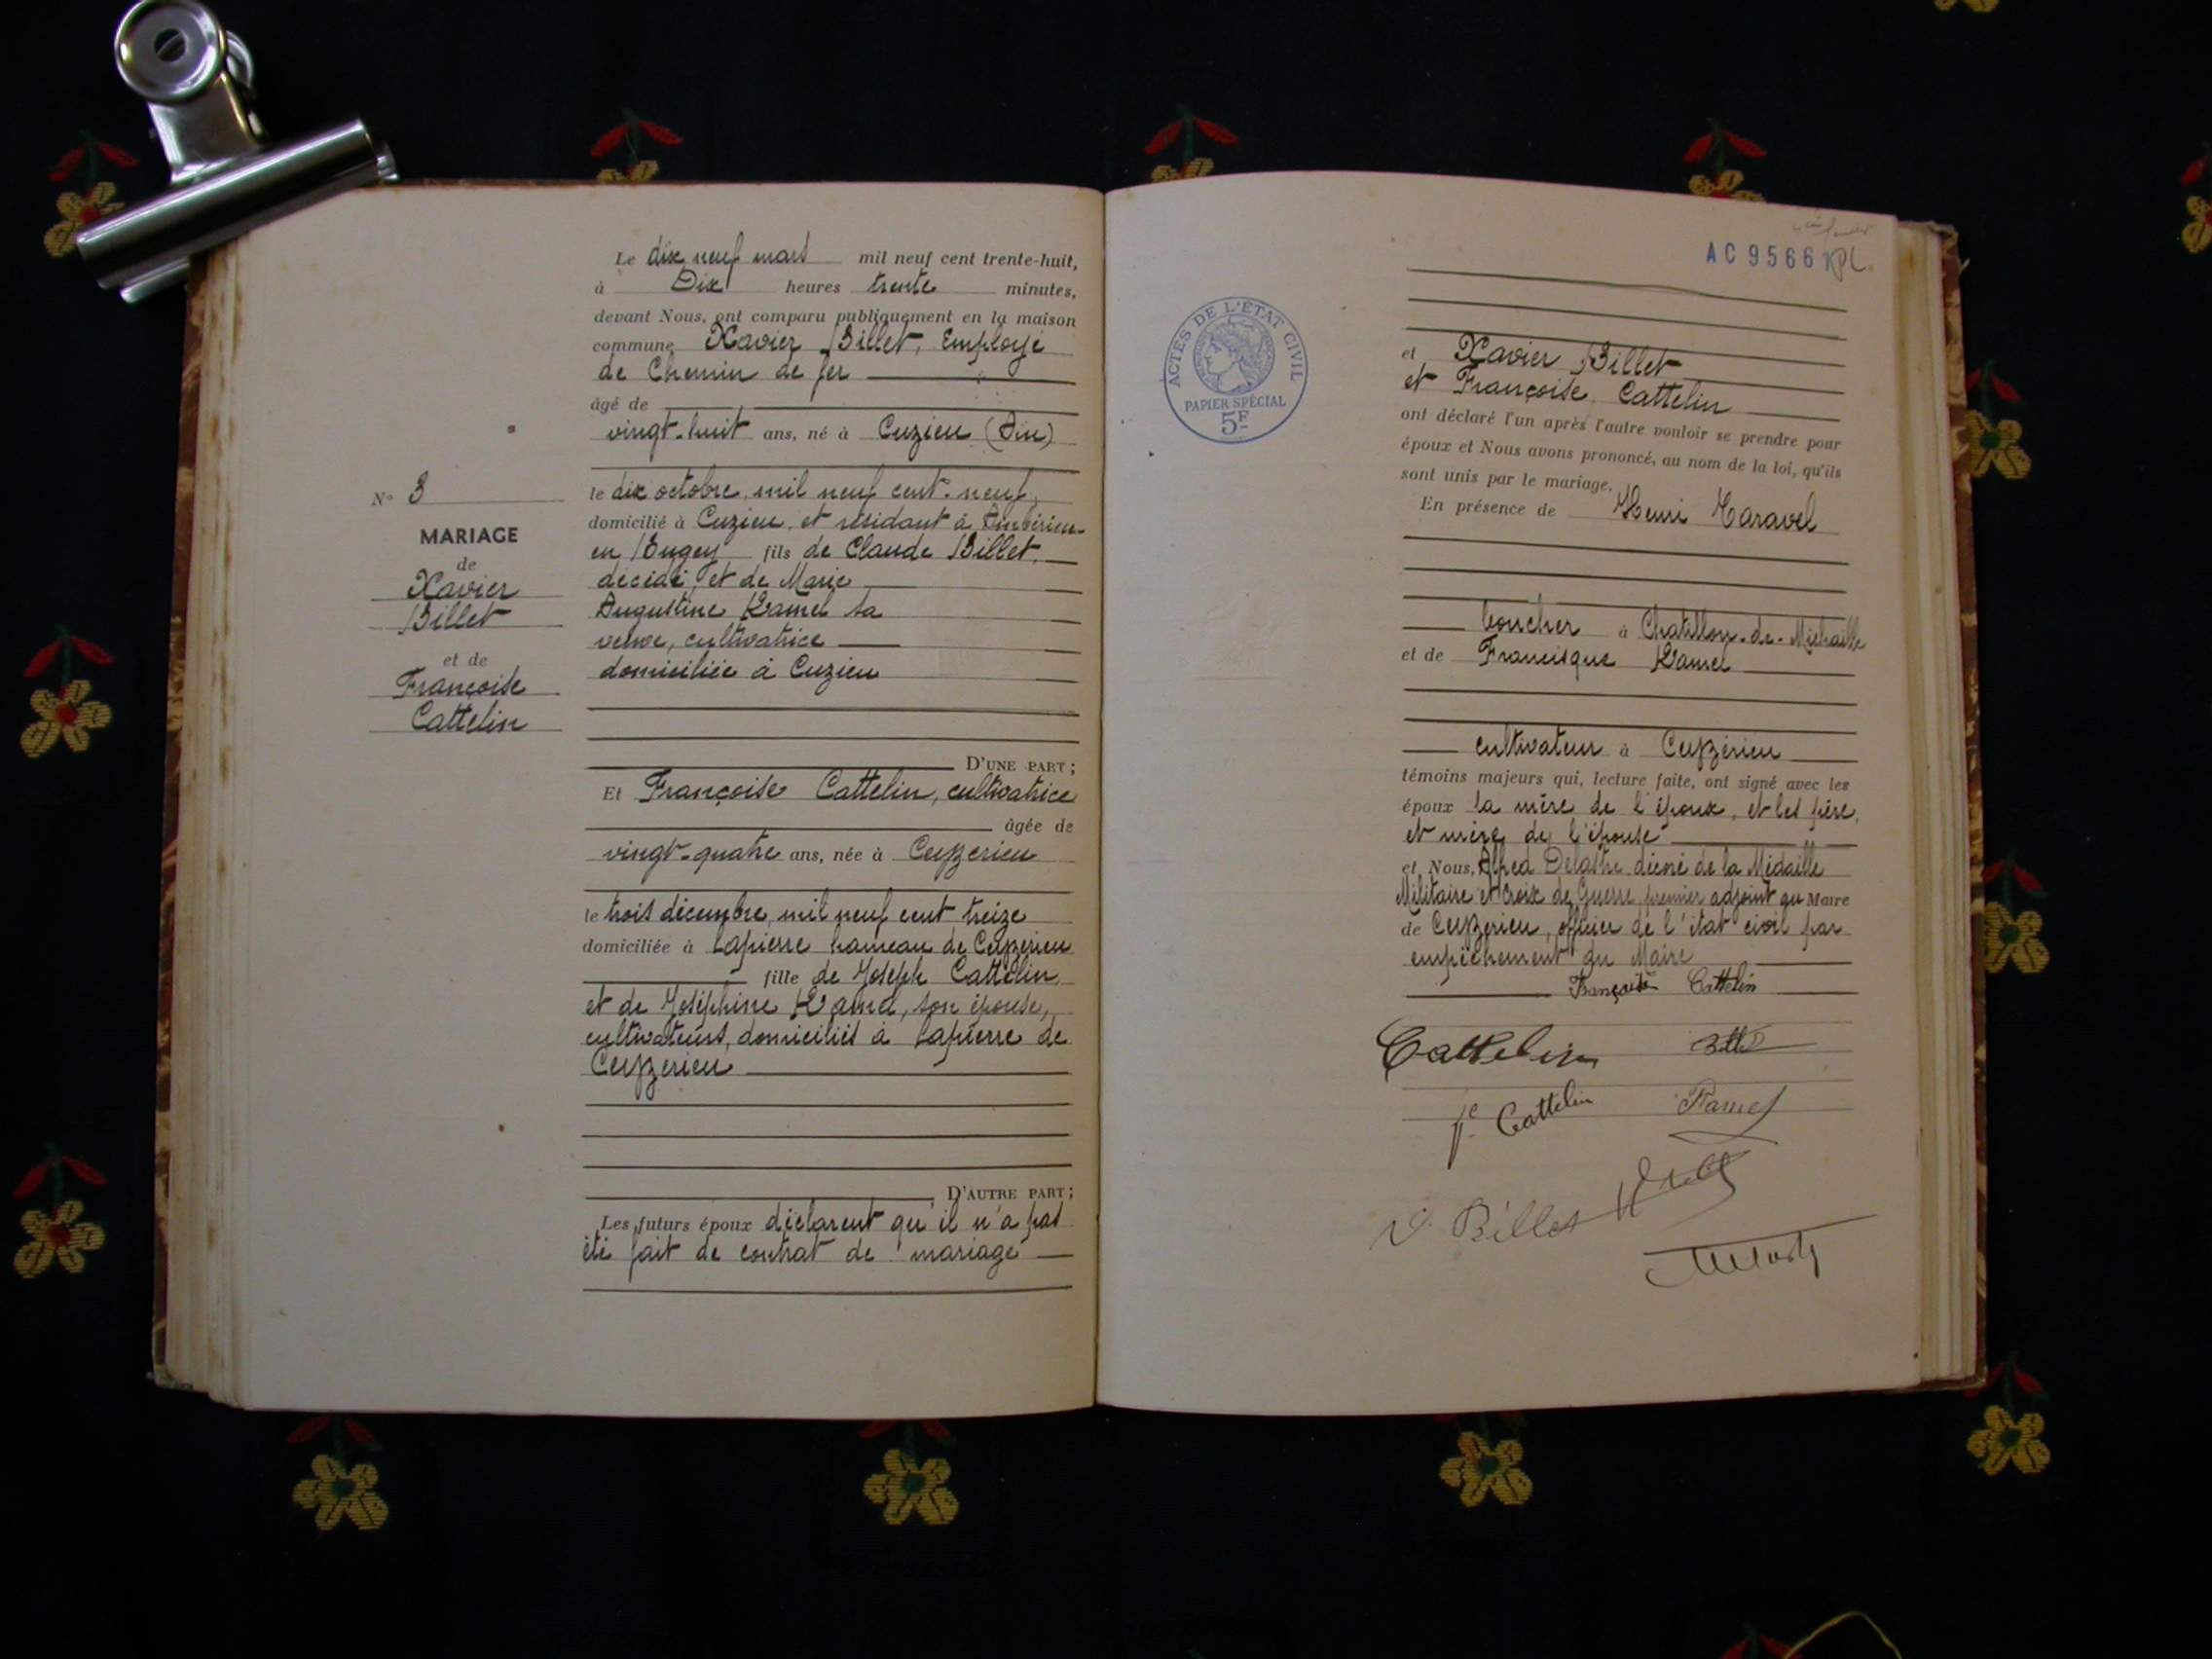 Le dix neuf mars mil neuf cent trente-huit,
à Dix heures trente minutes,
devant Nous, ont comparu publiquement en la maison
commune Xavier Billet, Employé
de Chemin de fer
âgé de
vingt-huit ans, né à Cuzieu (Ain)
le dix octobre mil neuf cent-neuf,
domicilié à Cuzieu et résidant à Ambérieu-
en Bugey fils de Claude Billet,
décédé, et de Marie
Augustine Ramel sa
veuve, cultivatrice
domiciliée à Cuzieu
D'UNE PART ;
Et Françoise Cattelin, cultivatrice
âgée de
vingt-quatre ans, née à Ceyzerieu
le trois décembre mil neuf cent treize
domiciliée à Lapierre hameau de Ceyzerieu
fille de Joseph Cattelin
et de Joséphine Ramel, son épouse,
cultivateurs, domiciliés à Lapierre de
Ceyzerieu
D'AUTRE PART ;
Les futurs époux déclarent qu'il n'a pas
été fait de contrat de mariage
N° 3
MARIAGE
de
Xavier
Billet
et de
Françoise
Cattelin
ACTES DE L'ÉTAT CIVIL
PAPIER SPÉCIAL
5F
AC 9566
et Xavier Billet
et Françoise Cattelin
ont déclaré l'un après l'autre vouloir se prendre pour
époux et Nous avons prononcé, au nom de la loi, qu'ils
sont unis par le mariage.
En présence de Henri Caravel
boucher à Chatillon-de-Michaille
et de Francisque Ramel
cultivateur à Ceyzérieu
témoins majeurs qui, lecture faite, ont signé avec les
époux la mère de l'époux, et les père
et mère de l'épouse
et Nous, Alfred Delastre décoré de la Médaille
Militaire et Croix de Guerre premier adjoint au Maire
de Ceyzerieu, officier de l'état civil par
empêchement du Maire
Françoise Cattelin
Cattelin
Cattelin Ramel
Billet